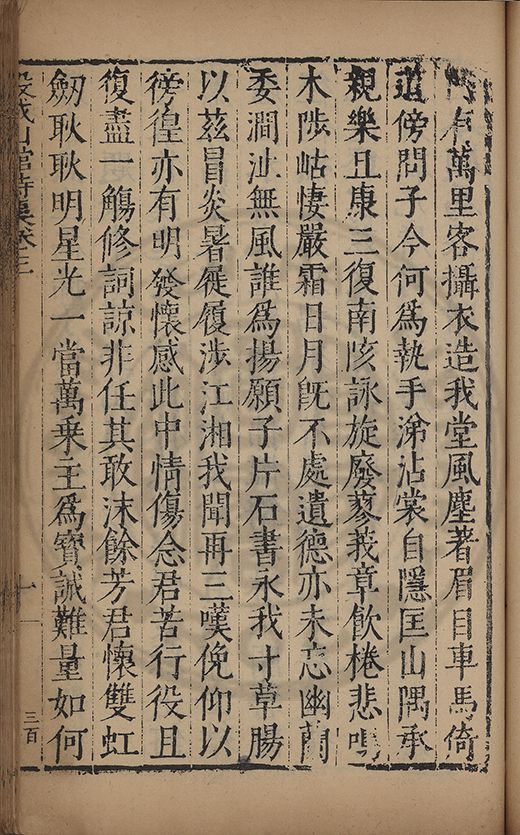 門有萬里客攝衣造我堂風塵著眉目車馬倚
道傍問子今何爲執手涕沾裳自隱匡山隅承
親樂且康三復南陔詠旋廢蓼莪章飲棬悲鳴
木陟岵悽嚴霜日月旣不處遺德亦未忘幽蘭
委澗沚無風誰爲揚願子片石書永我寸草腸
以茲冒炎暑屣履涉江湘我聞再三嘆俛仰以
徬徨亦有明發懷感此中情傷念君苦行役且
復盡一觴修詞諒非任其敢沫餘芳君懷雙虹
劒耿耿明星光一當萬乘王爲寶誠難量如何
山堂詩集卷三
三百